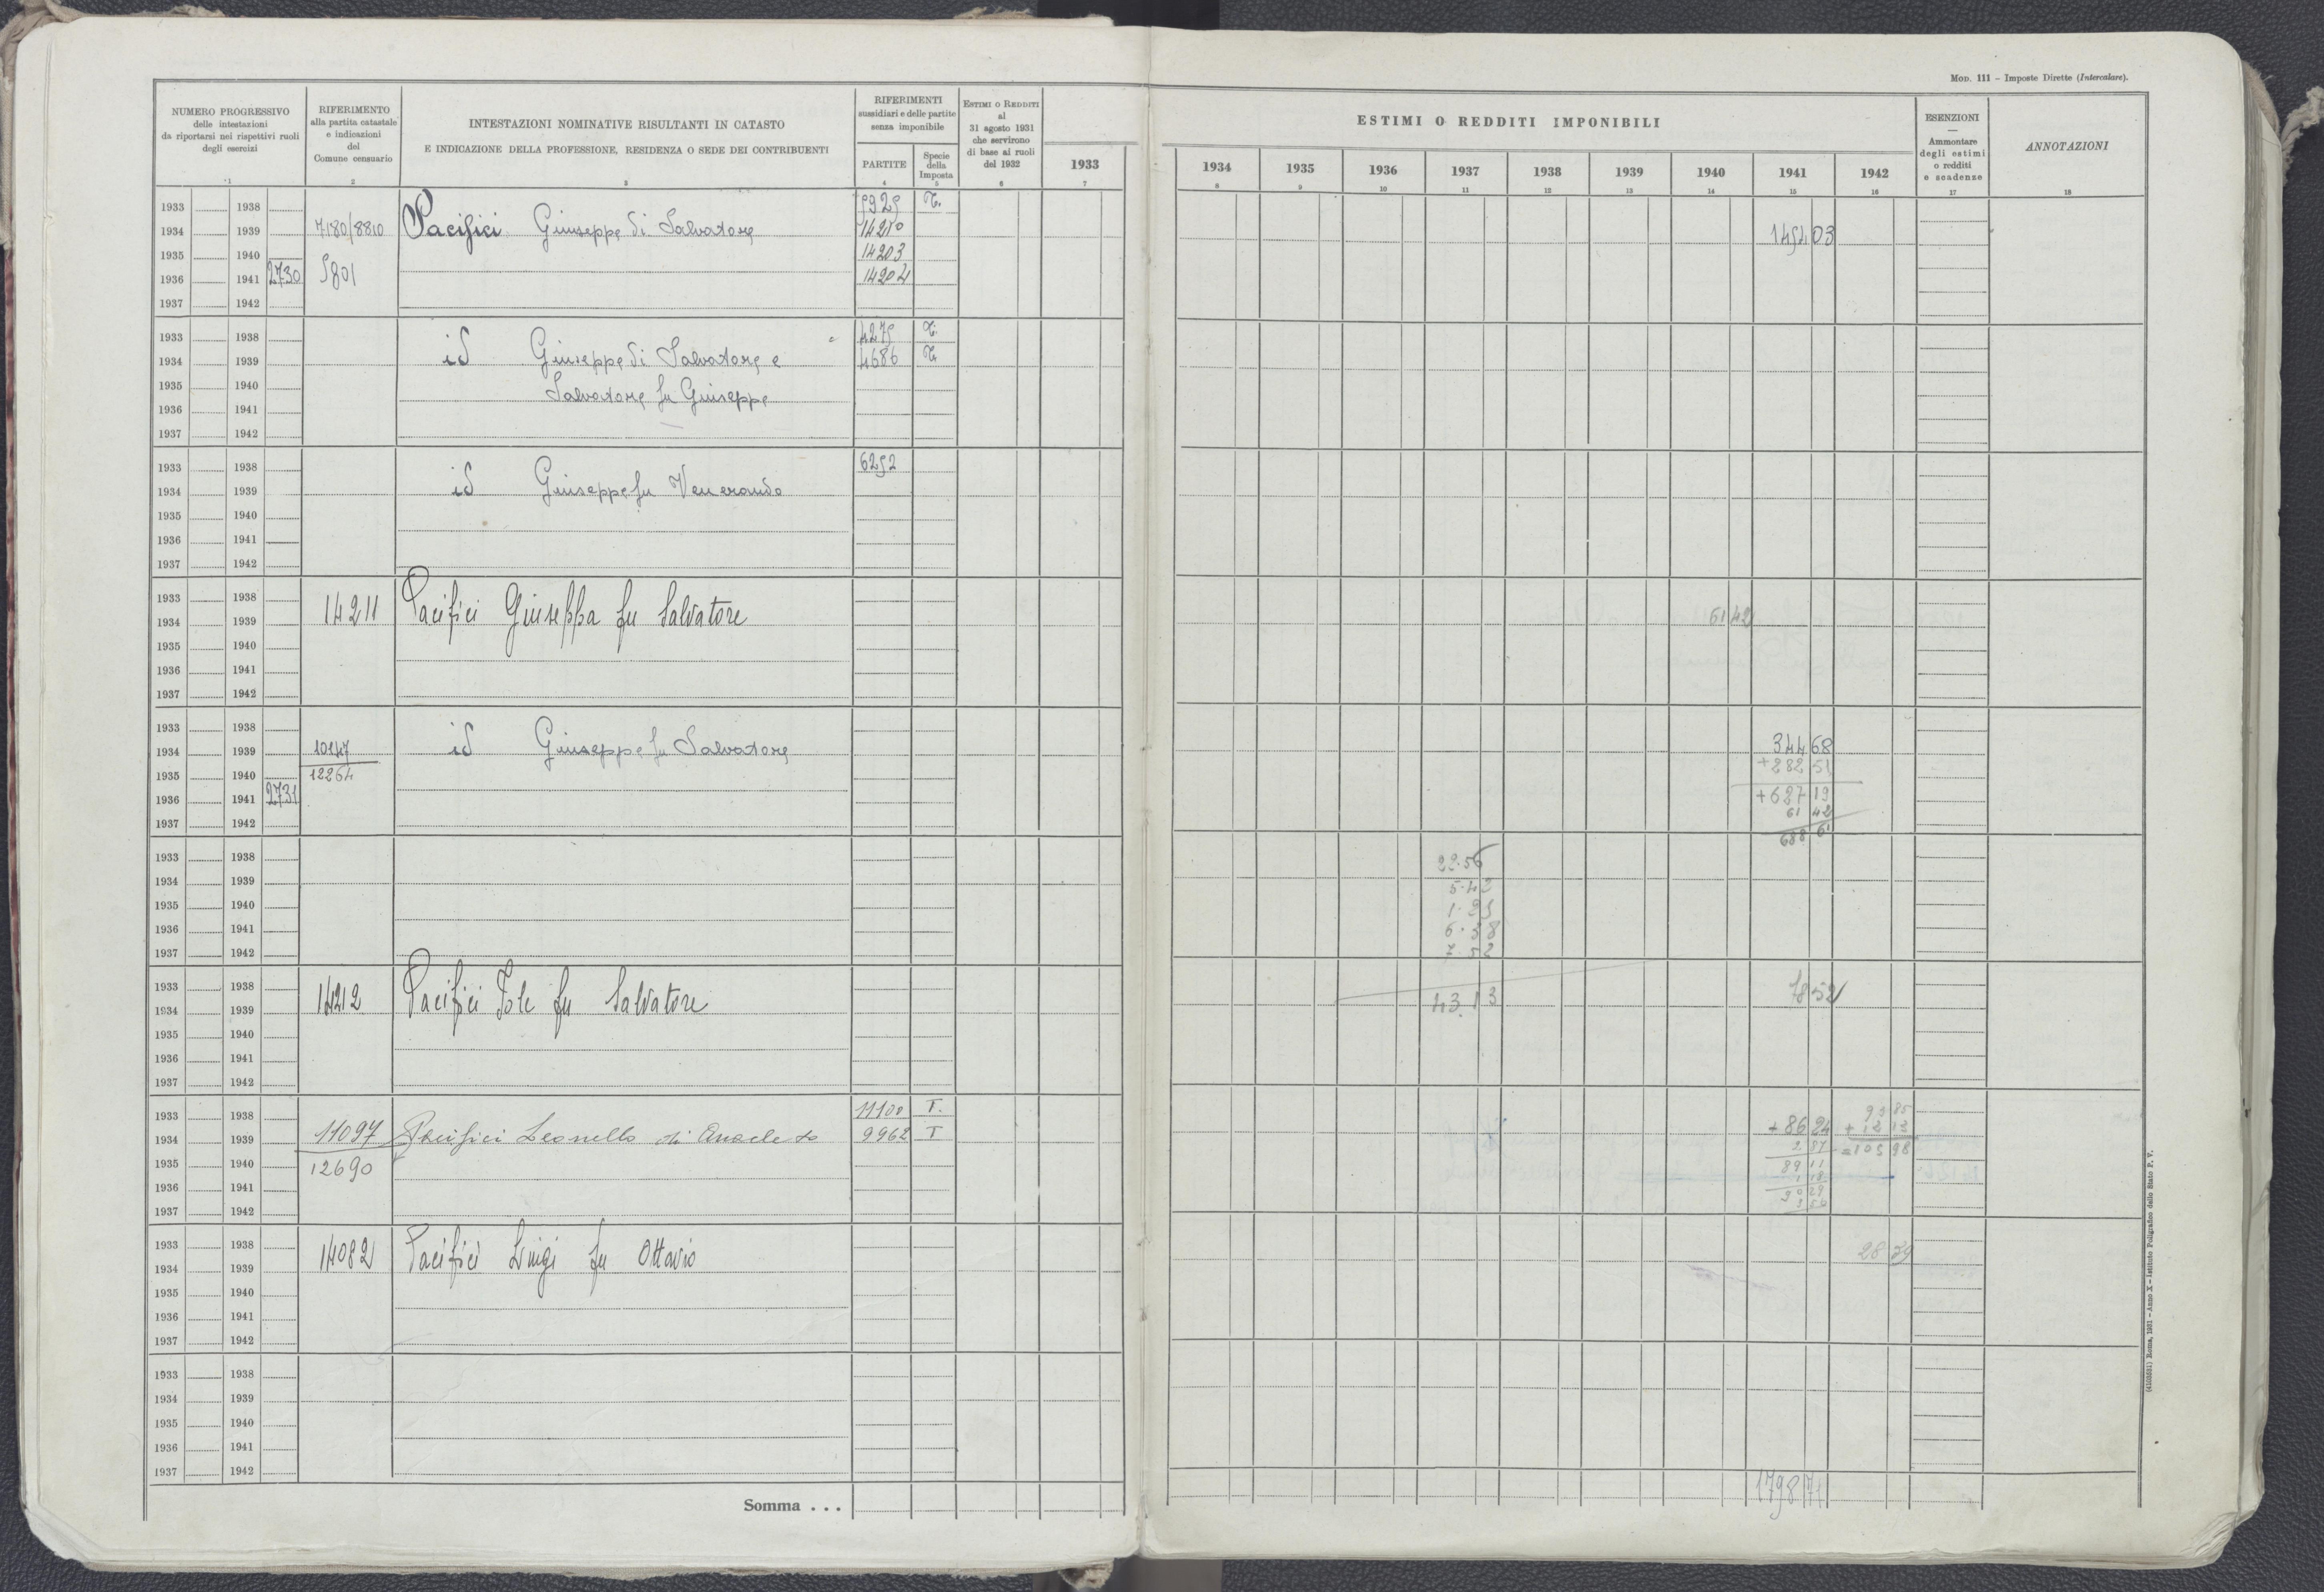 Mod. 111 – Imposte Dirette (Intercalare).
NUMERO PROGRESSIVO
delle intestazioni
da riportarsi nei rispettivi ruoli
degli esercizi
1
RIFERIMENTO
alla partita catastale
e indicazioni
del
Comune censuario
2
INTESTAZIONI NOMINATIVE RISULTANTI IN CATASTO
E INDICAZIONE DELLA PROFESSIONE, RESIDENZA O SEDE DEI CONTRIBUENTI
3
RIFERIMENTI
sussidiari e delle partite
senza imponibile
PARTITE
4
Specie
della
Imposta
5
Estimi o Redditi
al
31 agosto 1931
che servirono
di base ai ruoli
del 1932
6
ESTIMI O REDDITI IMPONIBILI
1933 1934 1935 1936 1937 1938 1939 1940 1941 1942
7 8 9 10 11 12 13 14 15 16
ESENZIONI
—
Ammontare
degli estimi
o redditi
e scadenze
17
ANNOTAZIONI
18
1933 1938 T.
1934 1939 7180/8810 Pacifici Giuseppe di Salvatore 14210
1935 1940 14203
1936 1941 2730 5801 14204
1937 1942
1933 1938 4275 T.
1934 1939 id Giuseppe di Salvatore e 4686 T.
1935 1940 Salvatore fu Giuseppe
1936 1941
1937 1942
1933 1938 6252
1934 1939 id Giuseppe fu Venerando
1935 1940
1936 1941
1937 1942
1933 1938
1934 1939 14211 Pacifici Giuseppa fu Salvatore 61 42
1935 1940
1936 1941
1937 1942
1933 1938
1934 1939 10147 id Giuseppe fu Salvatore 344 68
1935 1940 12264 +282 51
1936 1941 2731 +627 19
1937 1942 61 42
688 61
1933 1938 22.56
1934 1939 5.42
1935 1940
1936 1941 6.38
1937 1942 7.52
1933 1938
1934 1939 14212 Pacifici Iole fu Salvatore 43.13 18 52
1935 1940
1936 1941
1937 1942
1933 1938 11100 T. 93 85
1934 1939 11097 Pacifici Leonello di Anacleto 9962 T +86 24 +12 13
1935 1940 12690 2 87 =105 98
1936 1941 89 11
1937 1942 1 18
90 29
1933 1938
1934 1939 14082 Pacifici Luigi fu Ottavio 28 39
1935 1940
1936 1941
1937 1942
1933 1938
1934 1939
1935 1940
1936 1941
1937 1942
Somma . . . 1798 71
(4103031) Roma, 1931 – Anno X – Istituto Poligrafico dello Stato P. V.